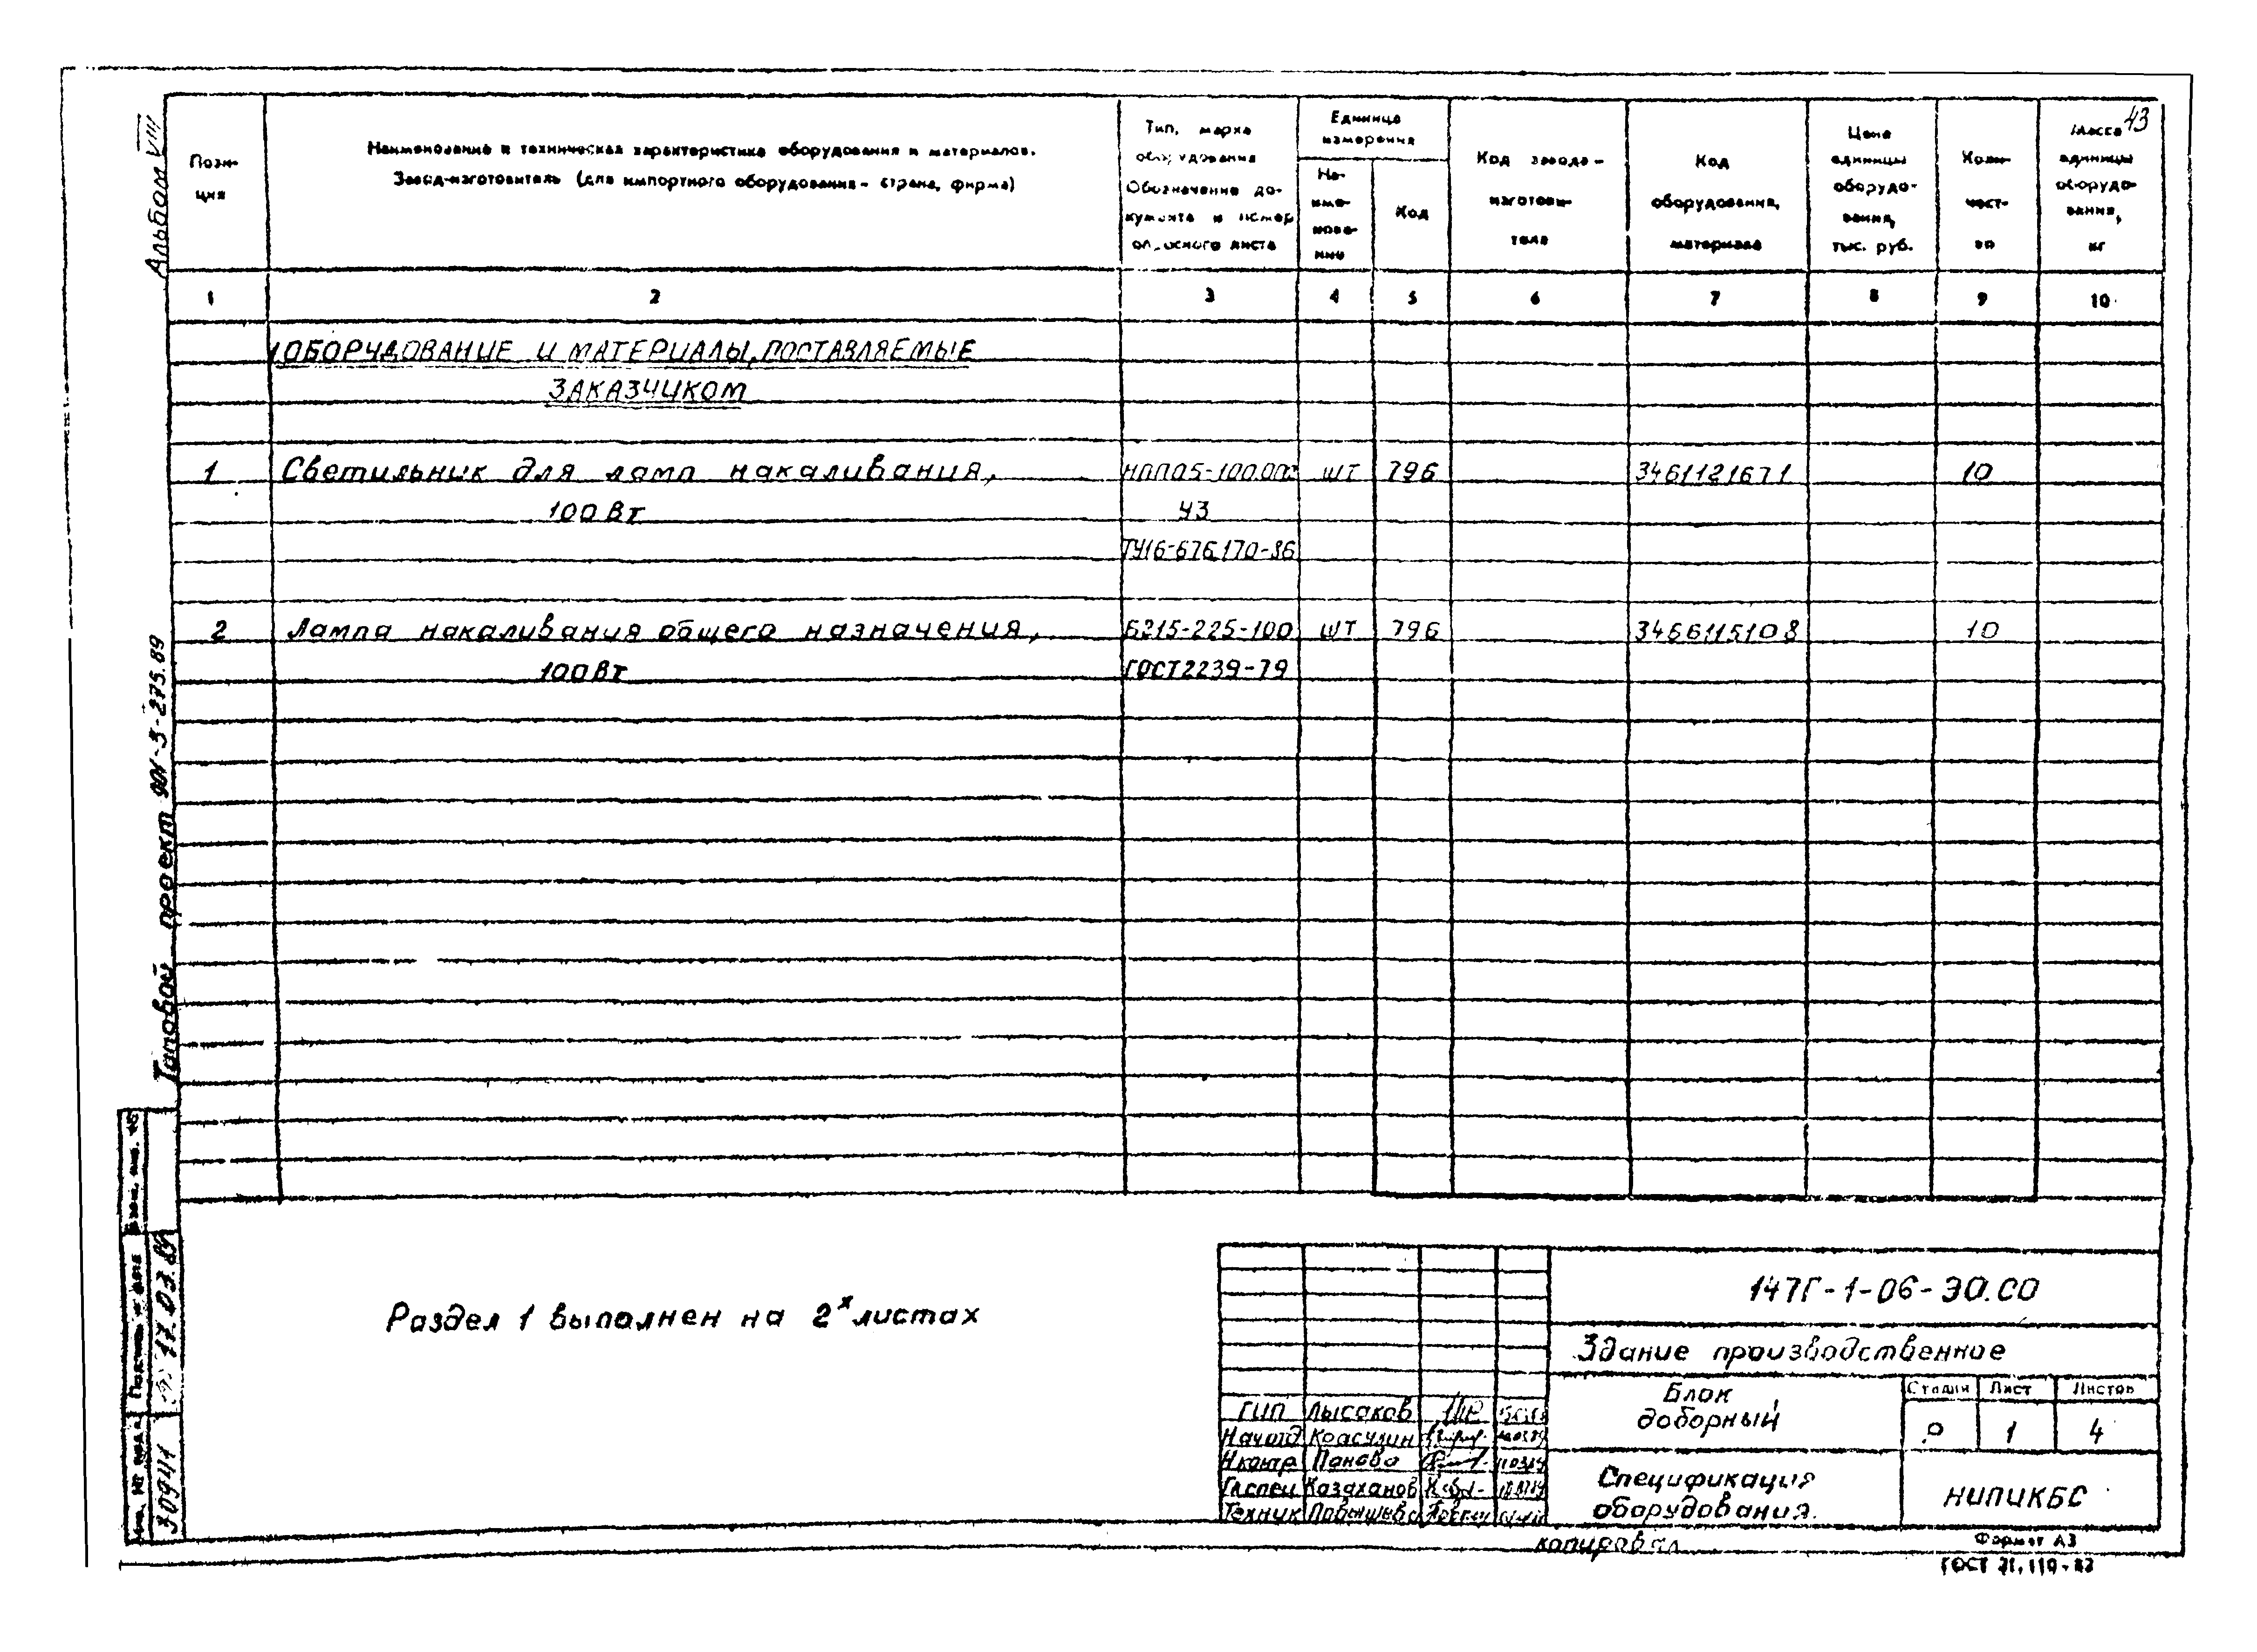 43
Альбом VIII
Пози-
ция
Наименование и техническая характеристика оборудования и материалов.
Завод-изготовитель (для импортного оборудования - страна, фирма)
Тип, марка
оборудования
Обозначение до-
кумента и номер
опросного листа
Единица
измерения
На-
име-
нова-
ние
Код
Код завода-
изготови-
теля
Код
оборудования,
материала
Цена
единицы
оборудо-
вания,
тыс. руб.
Коли-
чест-
во
Масса
единицы
оборудо-
вания,
кг
1 2 3 4 5 6 7 8 9 10
ОБОРУДОВАНИЕ И МАТЕРИАЛЫ, ПОСТАВЛЯЕМЫЕ
ЗАКАЗЧИКОМ
1 Светильник для ламп накаливания, шт 796 3461121671 10
100Вт У3
ТУ16-676.170-86
2 Лампа накаливания общего назначения, Б215-225-100 шт 796 3466115108 10
100Вт ГОСТ2239-79
Типовой проект 901-3-275.89
Взам. инв. №
Подпись и дата
17.03.89
Инв. № подл.
30941
Раздел 1 выполнен на 2х листах
147Г-1-06-ЭО.СО
Здание производственное
Блок
доборный
Стадия Лист Листов
Р 1 4
Спецификация
оборудования.
НИПИКБС
ГИП Лысаков
Нач отд Красулин
Н контр Панова
Гл спец Казаханов
Техник
копировал
Формат А3
ГОСТ 21.110-82